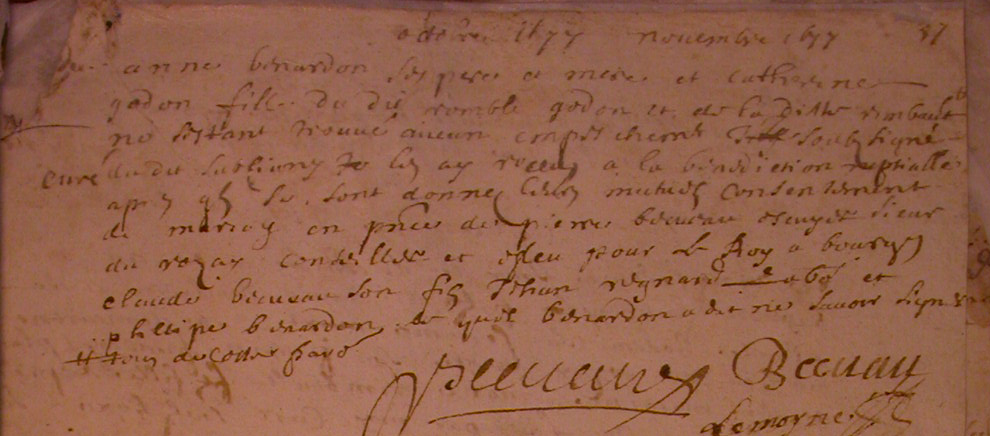 octobre 1677 novembre 1677 37
anne benardon ses pere et mere et catherine
godon fille du dit romble godon et de la ditte rimbault
ne sestant trouvé aucun empeschemt soubsigné
curé du dit les ay receus a la benediction nuptialle
apres qls se sont donnes leurs mutuels consentement
de mariag en pnce de pierre beeueau escuyer sieur
du rozay conseiller et esleu pour le Roy a bourges
claude beeueau son fils Jehan regnard et
phelipe benardon le quel benardon a dit ne savoir signer
tous de cette
Beeueau Beeuau
Lemoyne